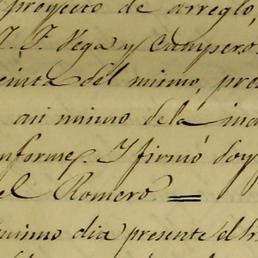 proyecto de arreglo,
J. F. Vega y Campero
del mismo, pre
mismo de la in
nforme. Y firmó doy
el Romero. =
mismo dia presente d